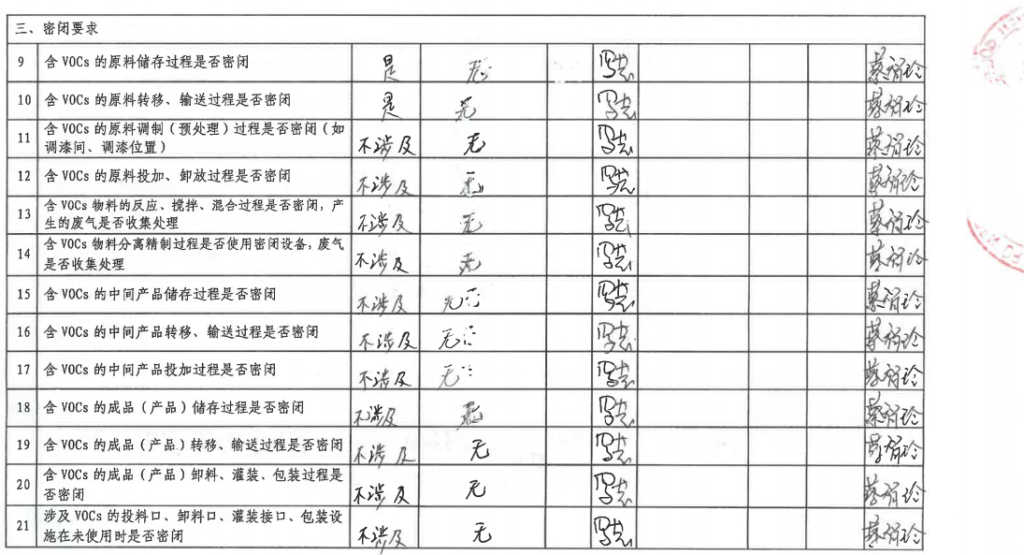 三、密闭要求
9 含 VOCs 的原料储存过程是否密闭 是 无
10 含 VOCs 的原料转移、输送过程是否密闭 是 无
11 含 VOCs 的原料调制（预处理）过程是否密闭（如
调漆间、调漆位置） 不涉及 无
12 含 VOCs 的原料投加、卸放过程是否密闭 不涉及 无
13 含 VOCs 物料的反应、搅拌、混合过程是否密闭，产
生的废气是否收集处理 不涉及 无
14 含 VOCs 物料分离精制过程是否使用密闭设备，废气
是否收集处理 不涉及 无
15 含 VOCs 的中间产品储存过程是否密闭 不涉及 无
16 含 VOCs 的中间产品转移、输送过程是否密闭 不涉及 无
17 含 VOCs 的中间产品投加过程是否密闭 不涉及 无
18 含 VOCs 的成品（产品）储存过程是否密闭 不涉及 无
19 含 VOCs 的成品（产品）转移、输送过程是否密闭 不涉及 无
20 含 VOCs 的成品（产品）卸料、灌装、包装过程是
否密闭 不涉及 无
21 涉及 VOCs 的投料口、卸料口、灌装接口、包装设
施在未使用时是否密闭 不涉及 无